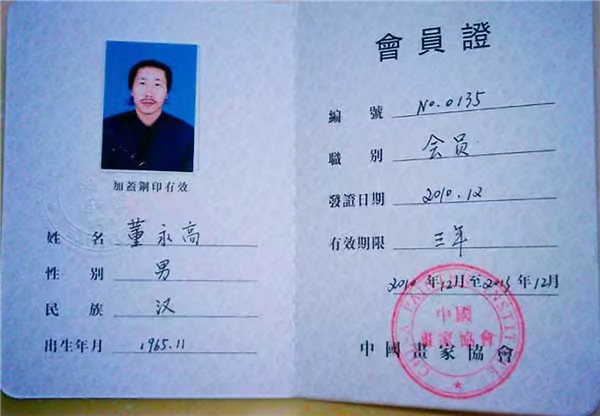 加蓋鋼印有效
姓名 董永高
性別 男
民族 汉
出生年月 1965.11
會員證
編號 No.0135
職別 会员
發證日期 2010.12
有效期限 三年
2010年12月至2013年12月
中國畫家協會
中國
畫家協會